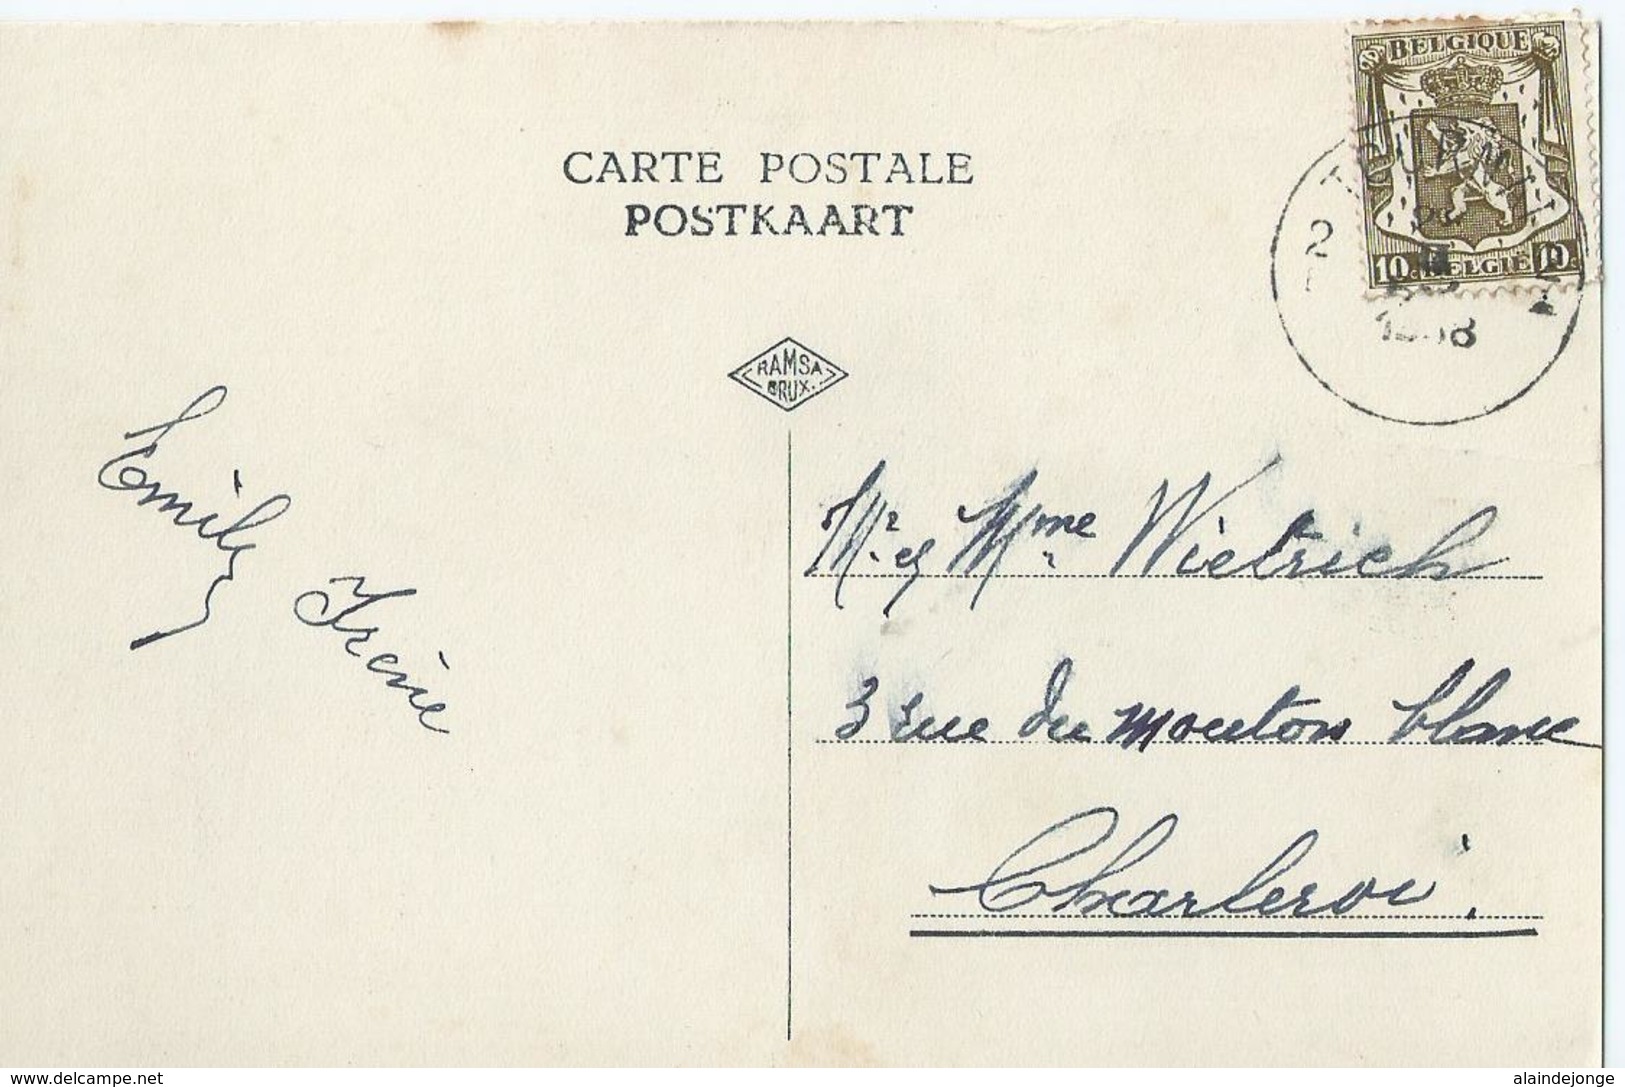 BELGIQUE
10c BELGIE 10c
TOURNAI
2
1938
CARTE POSTALE
POSTKAART
RAMSA
BRUX.
Emily
Irène
Mr et Mme Wietrich
3 rue du mouton blanc
Charleroi.
www.delcampe.net
alaindejonge